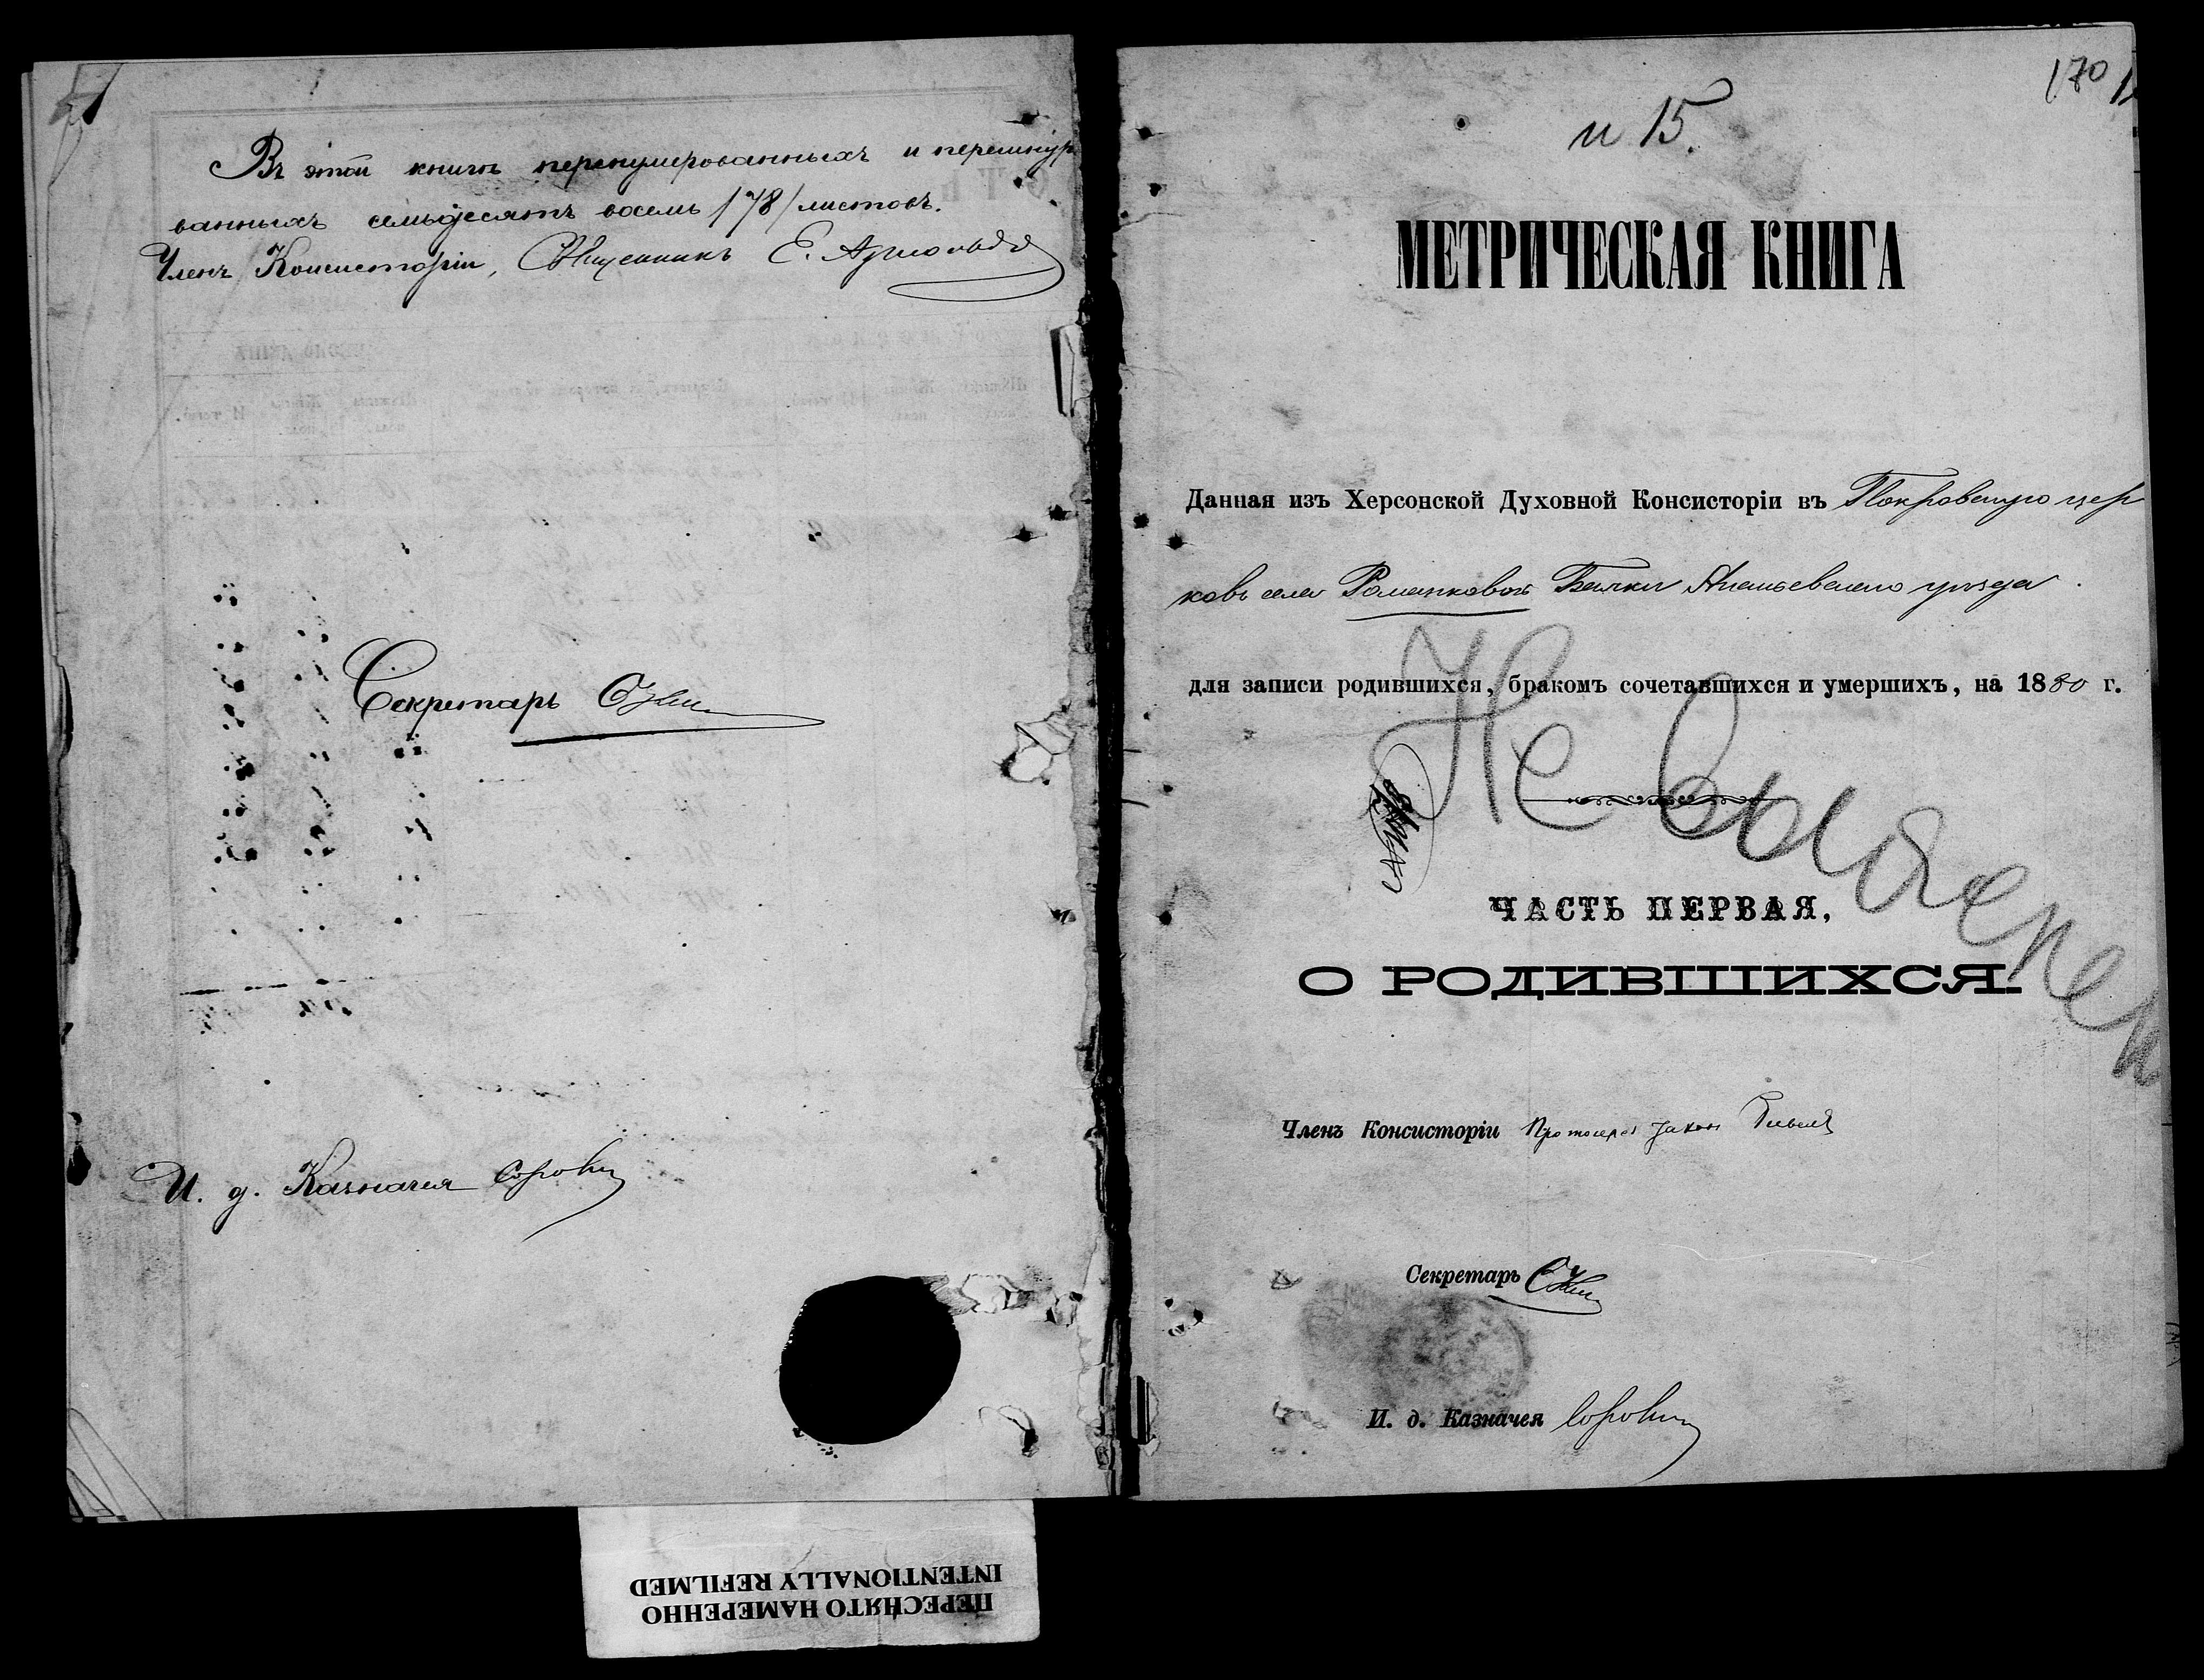 Въ этой книгѣ перенумерованныхъ и перешнуро
ванныхъ семьдесятъ восемь /78/ листовъ.
Членъ Консисторіи, Священникъ Е. Арнольдъ
Секретарь
И. д. Казначея
170
и 15.
МЕТРИЧЕСКАЯ КНИГА
Данная изъ Херсонской Духовной Консисторіи въ Покровскую цер
ковь села Романковой Балки Ананьевскаго уѣзда.
для записи родившихся, бракомъ сочетавшихся и умершихъ, на 1880 г.
Не выверен
ЧАСТЬ ПЕРВАЯ,
О РОДИВШИХСЯ.
Членъ Консисторіи Протоіерей
Секретарь
И. д. Казначея
ПЕРЕСНЯТО НАМЕРЕННО
INTENTIONALLY REFILMED